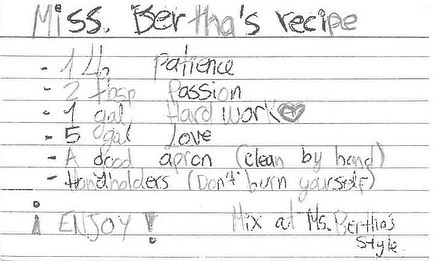 Miss. Bertha's recipe
- 1 lb patience
- 2 tbsp Passion
- 1 gal Hard work
- 5 gal Love
- A good apron (clean by hand)
- Handholders (Don't burn yourself)
¡ ENJOY ! Mix at Ms. Bertha's
Style.